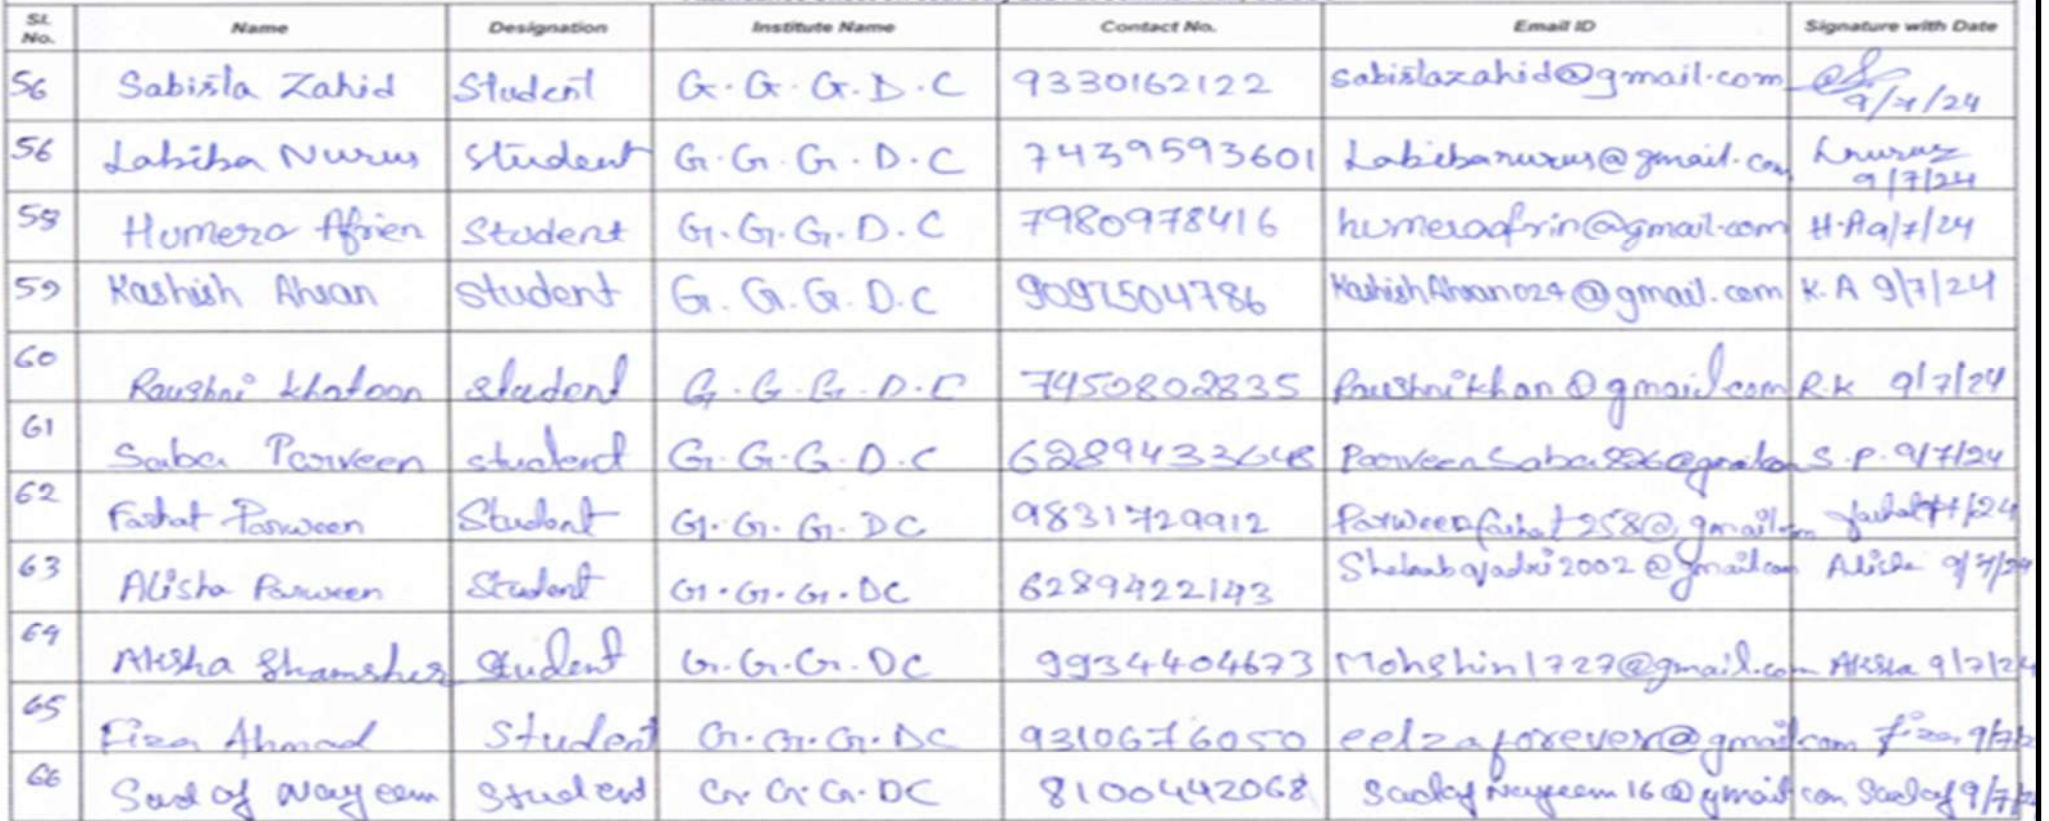 Sl. No. Name Designation Institute Name Contact No. Email ID Signature with Date
56 Sabista Zahid Student G.G.G.D.C 9330162122 sabistazahid@gmail.com 9/7/24
56 Labiba Nurus Student G.G.G.D.C 7439593601 Labibanurus@gmail.com Lnurus 9/7/24
58 Humera Afrien Student G.G.G.D.C 7980978416 humeraafrin@gmail.com H.A 9/7/24
59 Kashish Ahsan Student G.G.G.D.C 9097504786 KashishAhsan024@gmail.com K.A 9/7/24
60 Raushni Khatoon Student G.G.G.D.C 7450802835 Raushnikhan@gmail.com R.K 9/7/24
61 Saba Parveen Student G.G.G.D.C 6289433648 ParveenSaba826@gmail.com S.P. 9/7/24
62 Farhat Parween Student G.G.G.DC 9831729912 Parweenfarhat258@gmail.com Farhat
63 Alisha Parween Student G.G.G.DC 6289422143 Alisha 9/7/24
64 Alisha Shamsher Student G.G.G.DC 9934404673 Mohshin1727@gmail.com Alisha 9/7/24
65 Fiza Ahmad Student G.G.G.DC 9310676050 eelzaforever@gmail.com Fiza 9/7/2
66 Sadaf Nayeem Student G.G.G.DC 8100442068 SadafNayeem16@gmail.com Sadaf 9/7/2